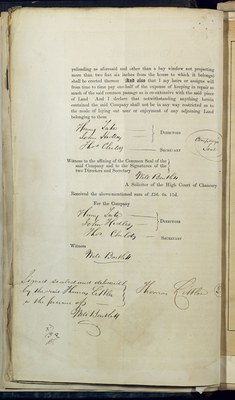 pebuilding as aforesaid and other than a bay window not projecting
more than two feet six inches from the house to which it belongs
shall be erected thereon And also that I my heirs or assigns will
from time to time pay one-half of the expense of keeping in repair so
much of the said common passage as is co-extensive with the said piece
of Land And I declare that notwithstanding anything herein
contained the said Company shall not be in any way restricted as to
the mode of laying out user or enjoyment of any adjoining Land
belonging to them
Henry
John
DIRECTORS
Thos Childs
SECRETARY
Company's
Seal
Witness to the affixing of the Common Seal of the
said Company and to the Signatures of the
two Directors and Secretary
Will Bartlett
A Solicitor of the High Court of Chancery
Received the above-mentioned sum of
For the Company
Henry
John
DIRECTORS
Thos Childs
SECRETARY
Witness
Will Bartlett
Signed sealed and delivered
by the said Thomas
in the presence of
Will Bartlett
Thomas